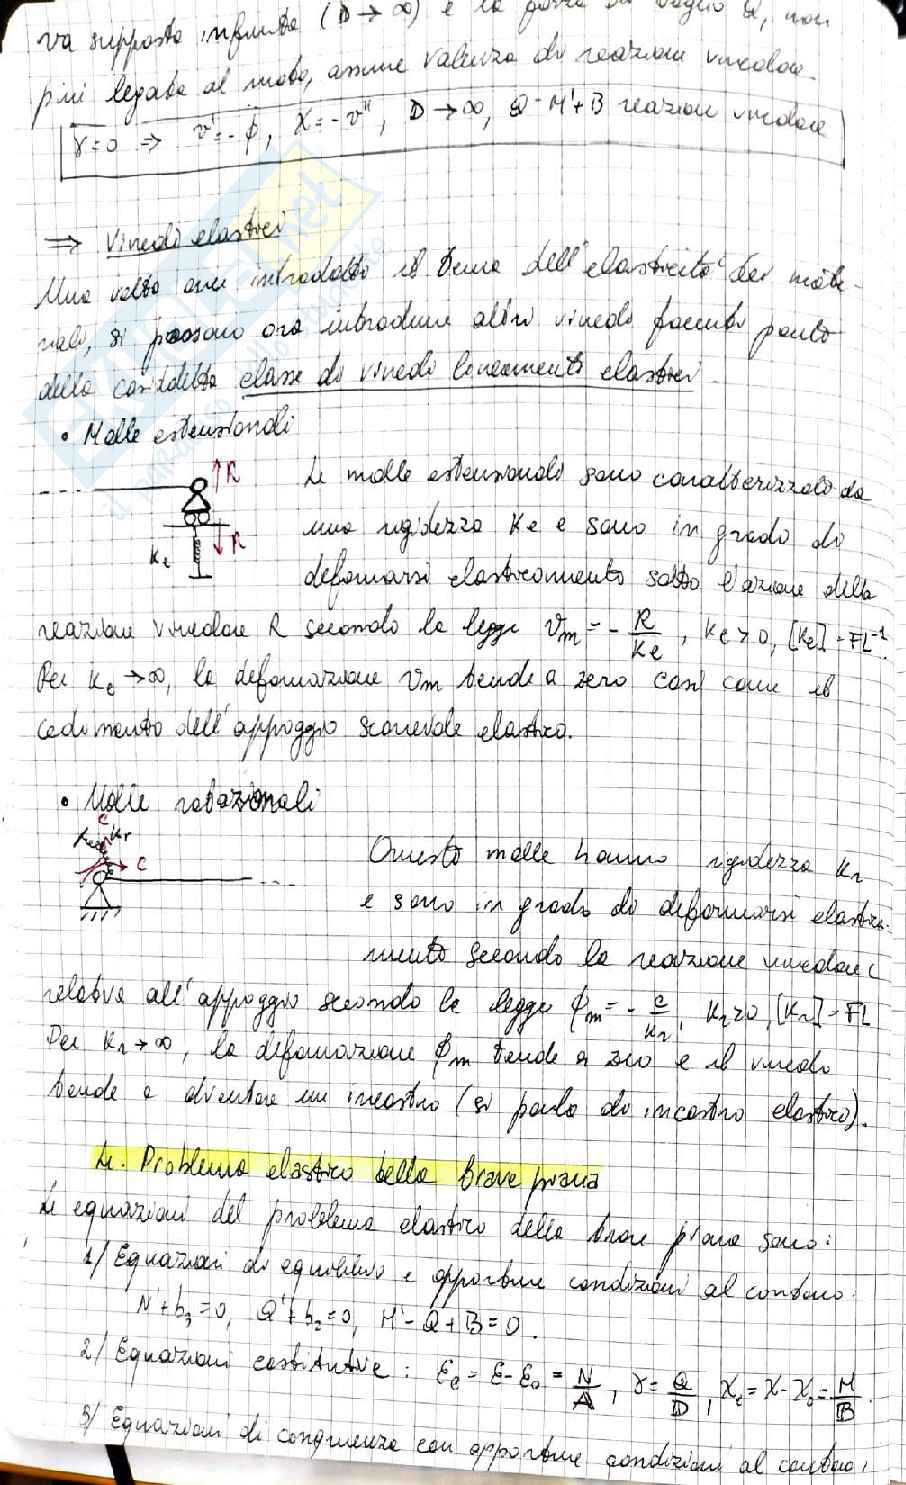 va supposta infinita (D → ∞) e la forza di taglio Q, non
più legata al moto, assume valenza di reazione vincolare.
γ=0 ⇒ v'=-ϕ, χ=-v'', D→∞, Q=M'+B reazioni vincolare
⇒ Vincoli elastici
Una volta aver introdotto il tema dell'elasticità dei mate-
riali, si possono ora introdurre altri vincoli facenti parte
della cosiddetta classe di vincoli linearmente elastici.
• Molle estensionali
R
R
Ke
Le molle estensionali sono caratterizzate da
una rigidezza Ke e sono in grado di
deformarsi elasticamente sotto l'azione della
reazione vincolare R secondo la legge vm = - R/Ke, Ke>0, [Ke]=FL⁻¹.
Per Ke→∞, la deformazione vm tende a zero così come il
cedimento dell'appoggio scorrevole elastico.
• Molle rotazionali
c
Kr
c
Queste molle hanno rigidezza Kr
e sono in grado di deformarsi elastica-
mente secondo la reazione vincolare c
relativa all'appoggio secondo la legge ϕm = - c/Kr, Kr>0, [Kr]=FL
Per Kr→∞, la deformazione ϕm tende a zero e il vincolo
tende a diventare un incastro (si parla di incastro elastico).
4. Problema elastico della trave piana
Le equazioni del problema elastico della trave piana sono:
1/ Equazioni di equilibrio e opportune condizioni al contorno:
N'+b₃=0, Q'+b₂=0, M'-Q+B=0.
2/ Equazioni costitutive: εe = ε-ε₀ = N/A, γ = Q/D, χe = χ-χ₀ = M/B.
3/ Equazioni di congruenza con opportune condizioni al contorno: